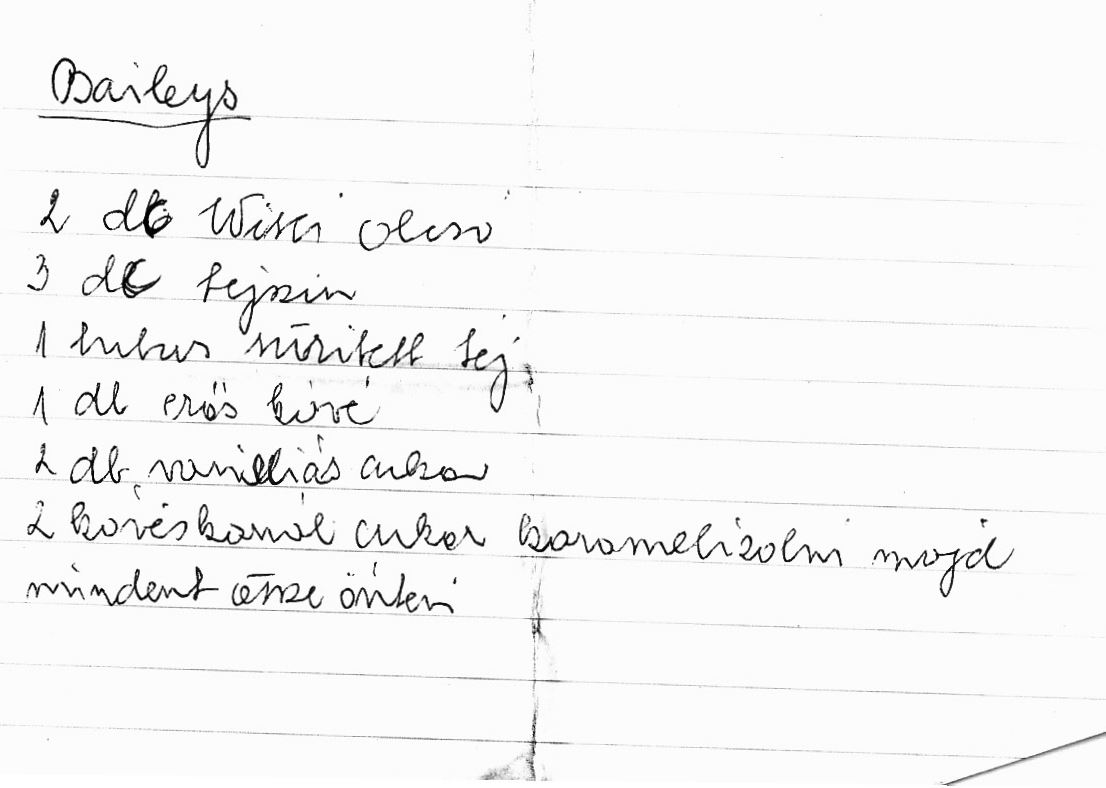 Baileys
2 dl Wisci olcsó
3 dl tejszin
1 tubus sűritett tej
1 db erős kávé
2 db vanilliás cukor
2 kávéskanál cukor karamelizolni majd
mindent össze önteni